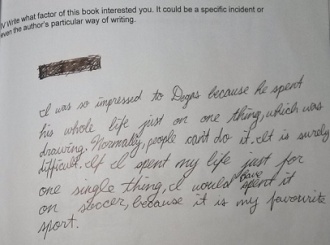 IV Write what factor of this book interested you. It could be a specific incident or
even the author's particular way of writing.
I was so impressed to Degas because he spent
his whole life just on one thing, which was
drawing. Normally, people can't do it. It is surely
difficult. If I spent my life just for
one single thing, I would have spent it
on soccer, because it is my favourite
sport.